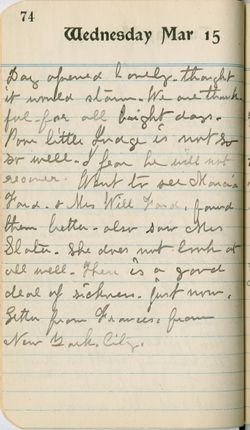 74
Wednesday Mar 15
Day opened lovely - thought
it would storm. We are thank
ful - for all bright days.
Poor little Judge is not so
so well - I fear he will not
recover. Went to see Maria
Ford. & Mrs Will Ford, found
them better - also saw Mrs
Slater. She does not look at
all well. There is a good
deal of sickness. just now.
Letter from Frances. from
New York. City.